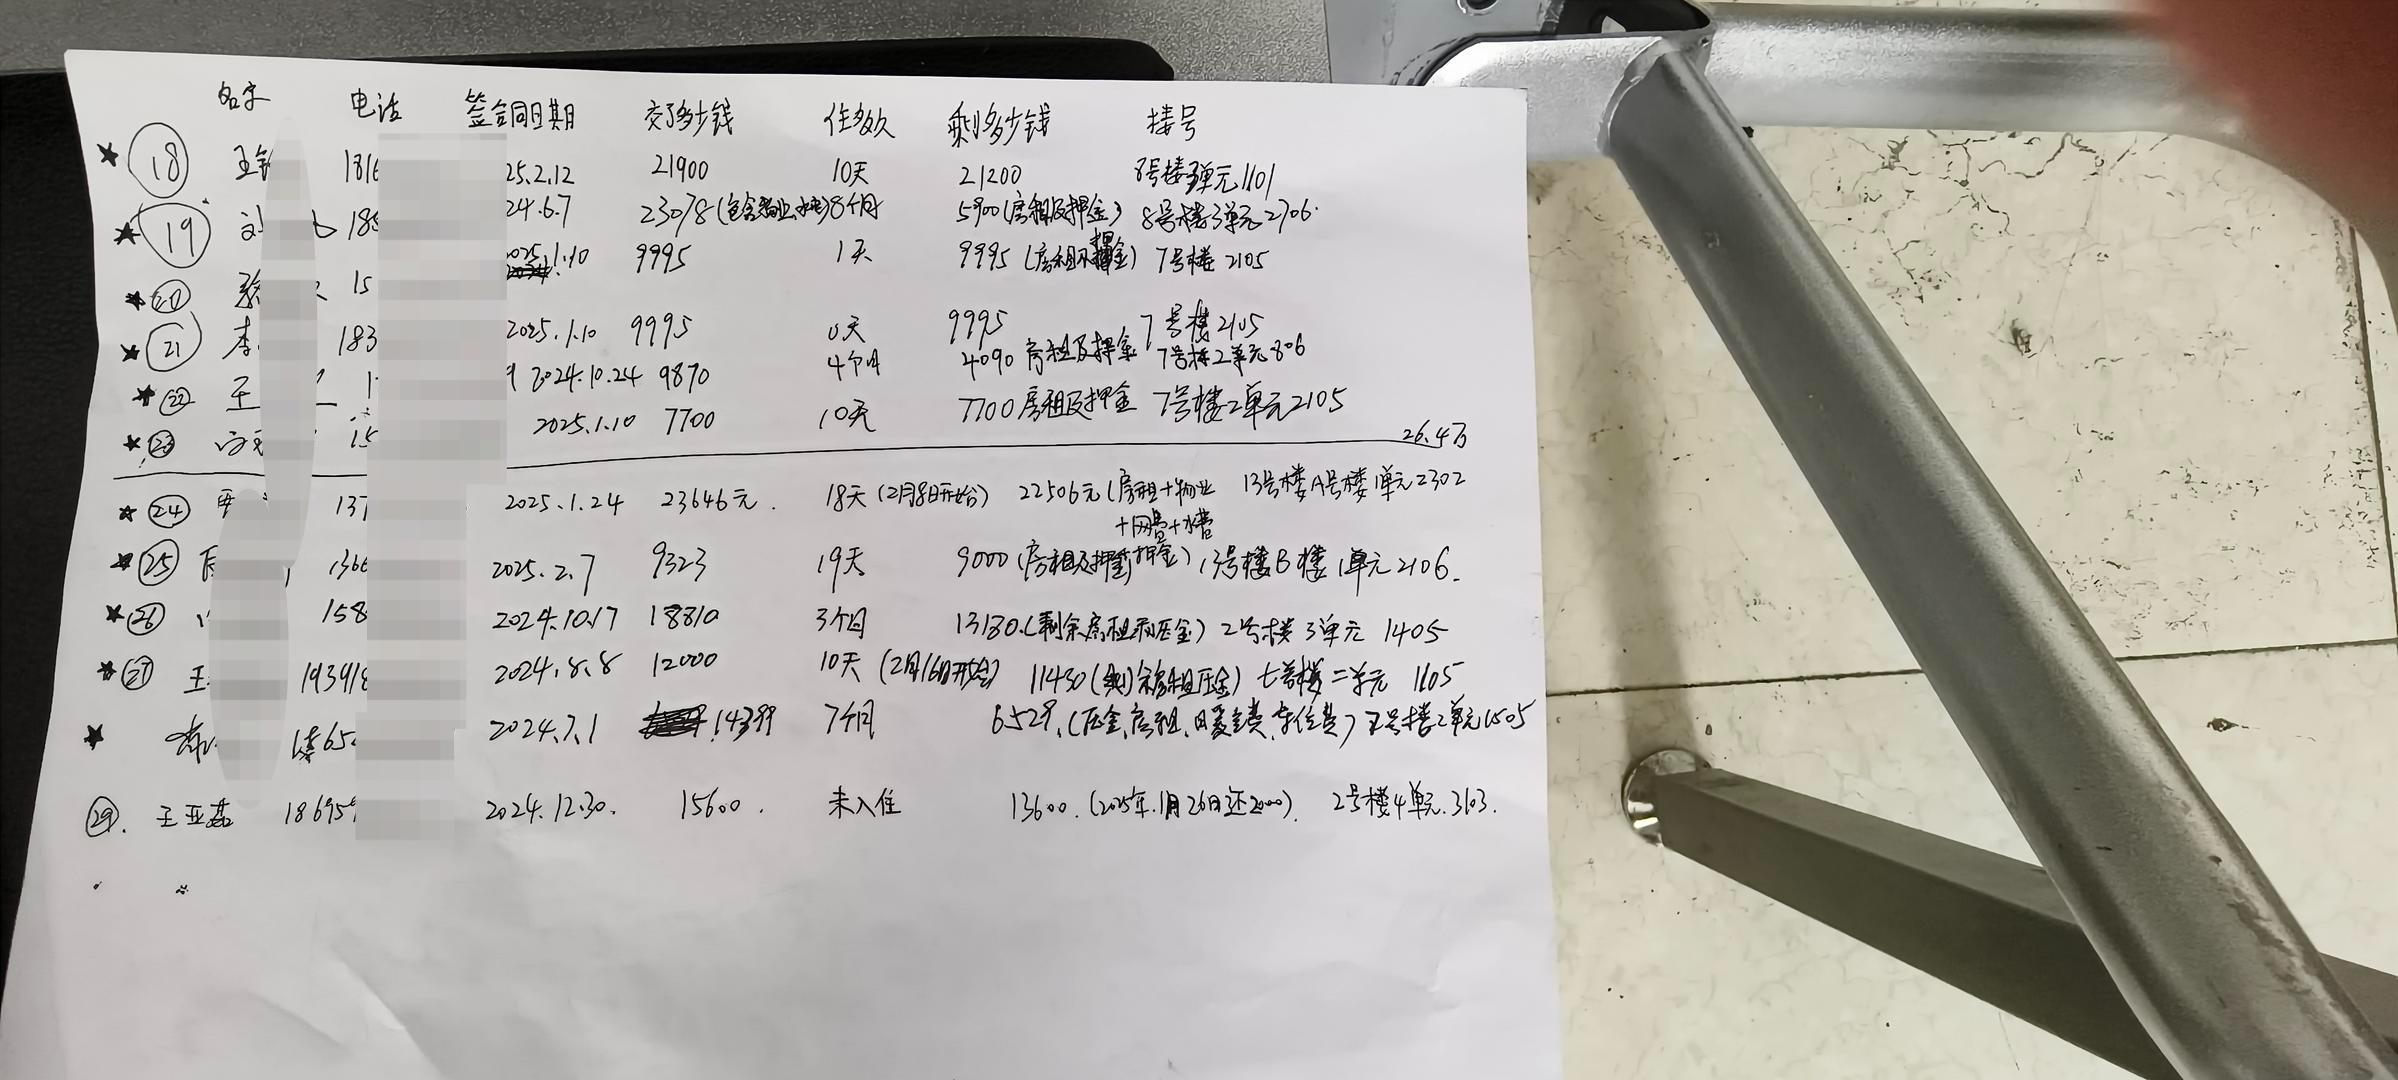 名字 电话 签合同日期 交了多少钱 住多久 剩多少钱 楼号
18 王 1816 25.2.12 21900 10天 21200 8号楼3单元1101
19 刘 185 24.6.7 23078(包含物业、水电) 8个月 5900(房租及押金) 8号楼3单元2706.
20 15 2025.1.10 9995 1天 9995(房租及押金) 7号楼 2105
21 李 183 2025.1.10 9995 0天 9995 7号楼2105
22 王 1 2024.10.24 9870 4个月 4090 房租及押金 7号楼2单元806
23 15 2025.1.10 7700 10天 7700房租及押金 7号楼2单元2105
26.4万
24 137 2025.1.24 23646元. 18天(2月8日开始) 22506元(房租+物业+网费+水费 13号楼A号楼1单元2302
25 136 2025.2.7 9323 19天 9000(房租及押金) 13号楼B楼1单元2106.
26 158 2024.10.17 18810 3个月 13130.(剩余房租和压金) 2号楼3单元 1405
27 王 193918 2024.8.8 12000 10天(2月16日开始) 11430(剩余房租压金) 七号楼二单元 1105
2024.7.1 14399 7个月 6529.(压金、房租、暖金费、车位费) 2单元1505
29. 王亚磊 186959 2024.12.30. 15600. 未入住 13600.(2025年.1月26日还2000). 2号楼4单元.3103.